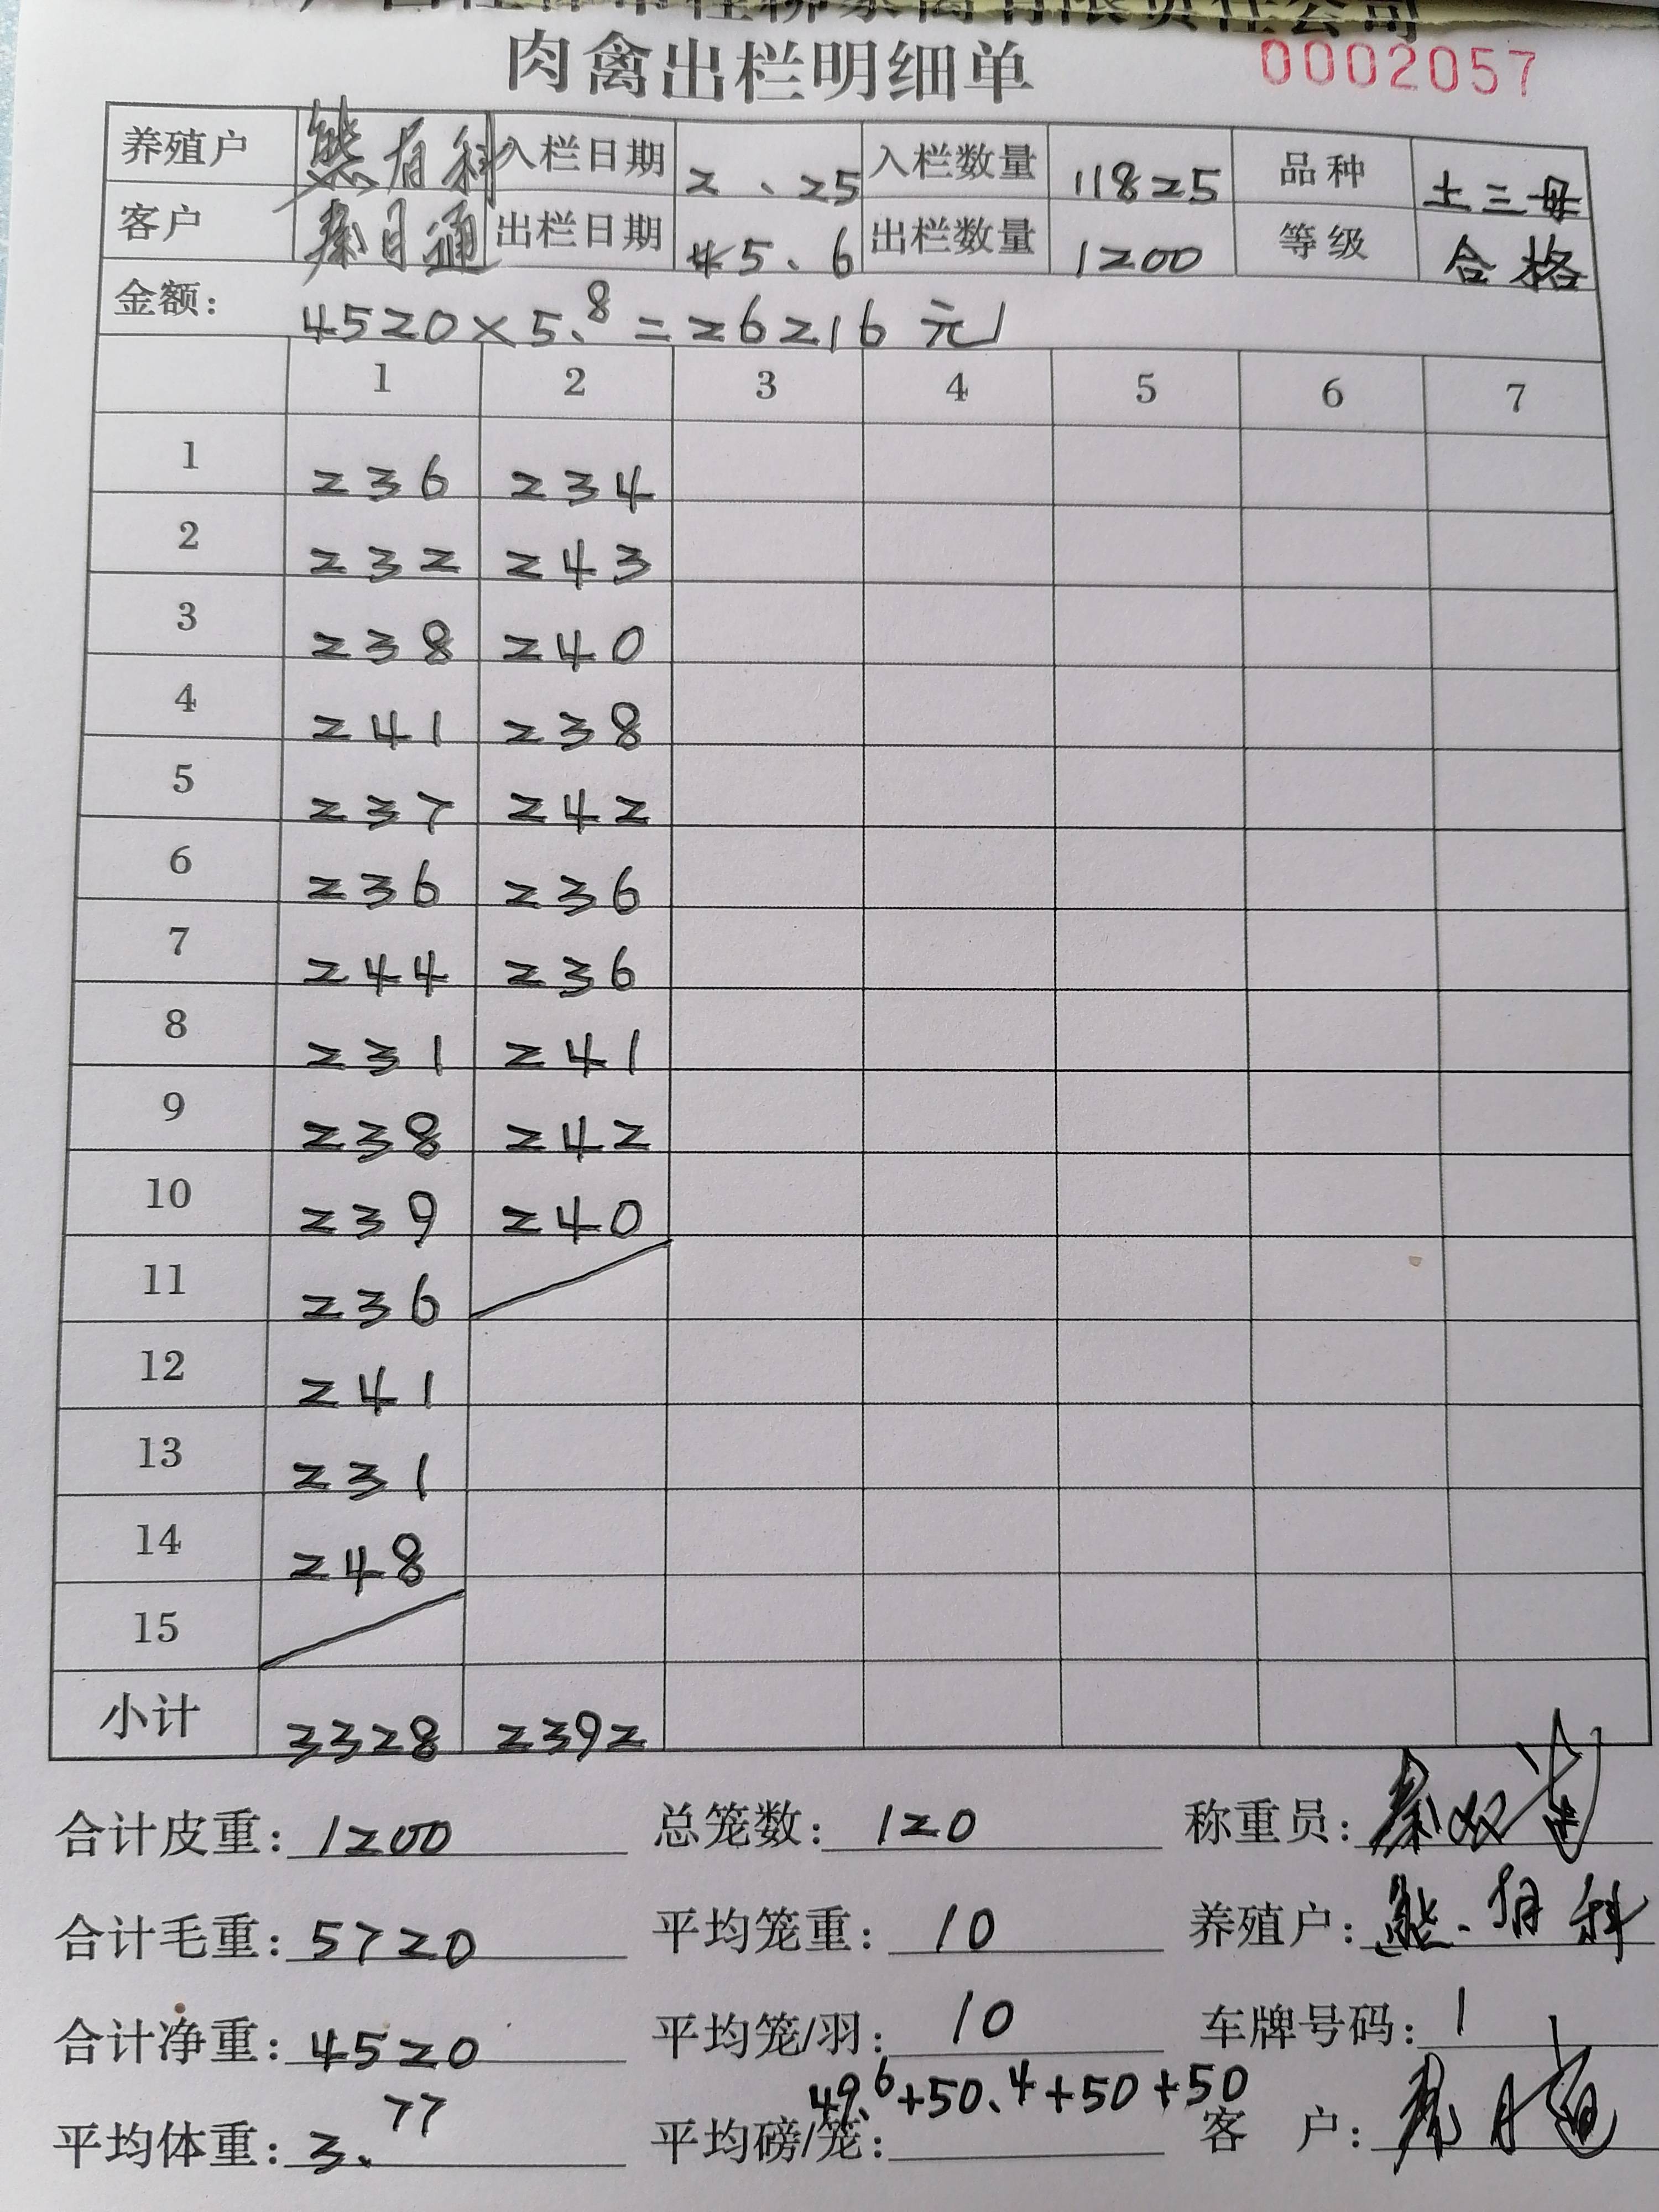 肉禽出栏明细单 0002057
养殖户 熊有科 入栏日期 2、25 入栏数量 11825 品种 土三母
客户 秦月通 出栏日期 5、6 出栏数量 1200 等级 合格
金额: 4520×5.8=26216元
1 2 3 4 5 6 7
1 236 234
2 232 243
3 238 240
4 241 238
5 237 242
6 236 236
7 244 236
8 231 241
9 238 242
10 239 240
11 236
12 241
13 231
14 248
15
小计 3328 2392
合计皮重: 1200 总笼数: 120 称重员:
合计毛重: 5720 平均笼重: 10 养殖户: 熊有科
合计净重: 4520 平均笼/羽: 10 车牌号码: 1
49.6+50.4+50+50
平均体重: 3.77 平均磅/笼: 客户: 秦月通